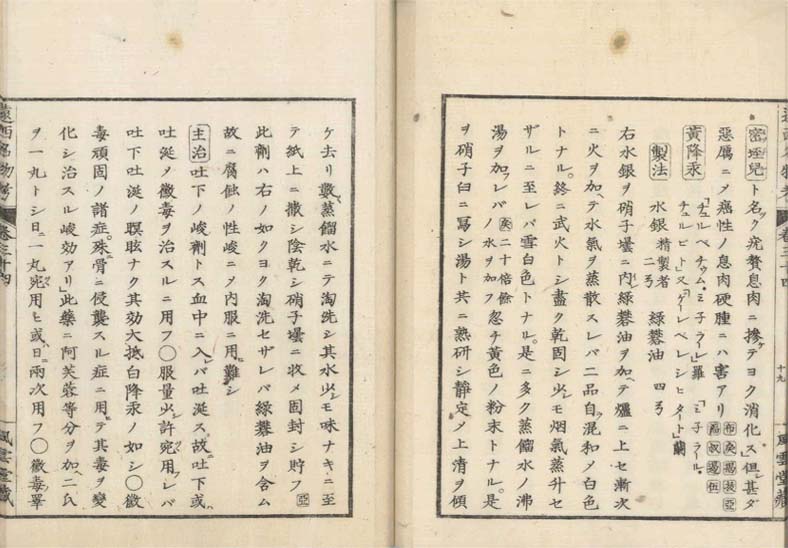 密垤兒ト名ク疣贅息肉ニ摻テヨク消化ス但甚ダ
惡厲ニメ癌性ノ息肉硬腫ニハ害アリ
黃降汞
「チュルペチュム・ミ子ラーレ」羅「ミ子ラール・
チュルビト」又「ゲールペレシピタート」蘭
製法 水銀精製者二弓 綠礬油 四弓
右水銀ヲ硝子壜ニ內レ綠礬油ヲ加ヘテ爐ニ上セ漸次
ニ火ヲ加ヘテ水氣ヲ蒸散スレバ二品自ラ混和メ白色
トナル。終ニ武火トシ盡ク乾固シ少シモ烟氣蒸升セ
ザルニ至レバ雪白色トナル。是ニ多ク蒸餾水ノ沸
湯ヲ加フレバ二十倍餘ノ水ヲ加フ忽チ黃色ノ粉末トナル。是
ヲ硝子臼ニ寫シ湯ト共ニ熟研シ靜定メ上清ヲ傾
十九
風雲堂藏
ケ去リ數蒸餾水ニテ淘洗シ其水少シモ味ナキニ至
テ紙上ニ撒シ陰乾シ硝子壜ニ收メ固封シ貯フ亞
此劑ハ右ノ如クヨク淘洗セザレバ綠礬油ヲ含ム
故ニ腐蝕ノ性峻ニメ內服ニ用ヒ難シ
主治 吐下ノ峻劑トス血中ニ入レバ吐涎ス故ニ吐下或
吐涎メ黴毒ヲ治スルニ用フ〇服量少シ許宛用レバ
吐下吐涎ノ瞑眩ナク其効大抵白降汞ノ如シ〇黴
毒頑固ノ諸症殊ニ骨ニ侵襲スル症ニ用テ其毒ヲ變
化シ治スル峻効アリ」此藥ニ阿芙蓉等分ヲ加ヘ二氏
ヲ一丸トシ日ニ一丸宛用ヒ或ハ日ニ兩次用フ〇黴毒睪
遠西名物考 卷三十四
風雲堂藏